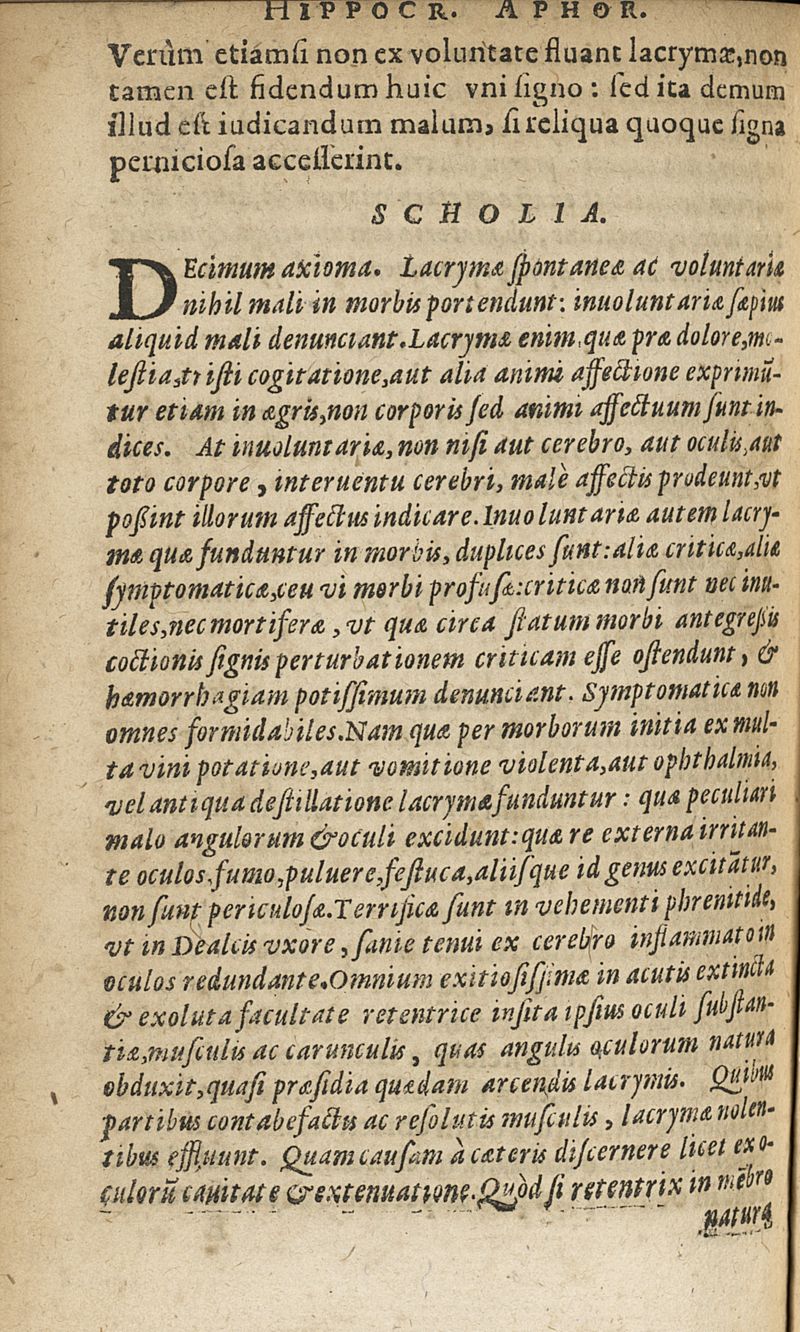 HIPPOCR. APHOR.
Verùm etiamſi non ex voluntate fluant lacrymæ,non
tamen eſt fidendum huic vni ſigno : ſed ita demum
illud eſt iudicandum malum, ſi reliqua quoque ſigna
pernicioſa acceſſerint.
SCHOLIA.
DEcimum axioma. Lacrymæ ſpontaneæ ac voluntariæ
nihil mali in morbis portendunt: inuoluntariæ ſæpius
aliquid mali denunciant.Lacrymæ enim,quæ præ dolore,mo-
leſtia,triſti cogitatione,aut alia animi affectione exprimū-
tur etiam in ægris,non corporis ſed animi affectuum ſunt in-
dices. At inuoluntariæ,non niſi aut cerebro, aut oculis,aut
toto corpore , interuentu cerebri, malè affectis prodeunt,vt
poßint illorum affectus indicare.Inuoluntariæ autem lacry-
mæ quæ funduntur in morbis, duplices ſunt:aliæ criticæ,aliæ
ſymptomaticæ,ceu vi morbi profuſæ:criticæ non ſunt nec inu-
tiles,nec mortiferæ , vt quæ circa ſtatum morbi antegreßis
coctionis ſignis perturbationem criticam eſſe oſtendunt, &
hæmorrhagiam potiſſimum denunciant. Symptomaticæ non
omnes formidabiles.Nam quæ per morborum initia ex mul-
ta vini potatione,aut vomitione violenta,aut ophthalmia,
vel antiqua deſtillatione lacrymæ funduntur : quæ peculiari
malo angulorum & oculi excidunt:quæ re externa irritan-
te oculos,fumo,puluere,feſtuca,aliiſque id genus excitātur,
non ſunt periculoſæ.Terrificæ ſunt in vehementi phrenitide,
vt in Dealcis vxore , ſanie tenui ex cerebro inflammato in
oculos redundante.Omnium exitioſiſſimæ in acutis extincta
& exoluta facultate retentrice inſita ipſius oculi ſubſtan-
tiæ,muſculis ac carunculis , quas angulis oculorum natura
obduxit,quaſi præſidia quædam arcendis lacrymis. Quibus
partibus contabefactis ac reſolutis muſculis , lacrymæ nolen-
tibus effluunt. Quam cauſam à cæteris diſcernere licet ex o-
culorū cauitate & extenuatione.Quòd ſi retentrix in mēbro
natura